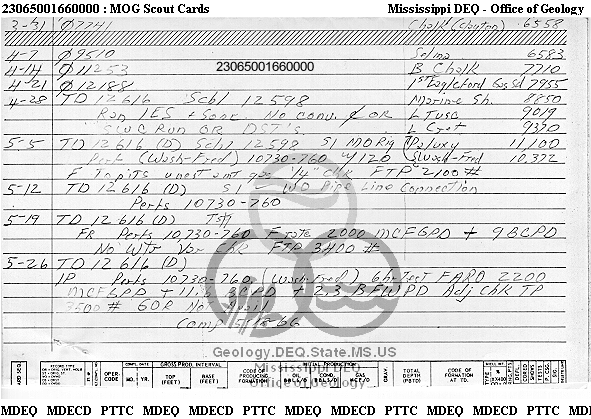 23065001660000 : MOG Scout Cards Mississippi DEQ - Office of Geology
3-31 Ø7741 Chalk (Clayton) 6558
4-7 Ø9510 Selma 6583
4-14 Ø11253 23065001660000 B Chalk 7710
4-21 Ø12188 1st Eagleford Gas Sd 7955
4-28 TD 12616 Schl 12598 Marine Sh. 8850
Ran IES + Sonic No conv. Ø OR L Tusc 9019
SWC Run OR DST's. L Cret 9390
5-5 TD 12616 (D) Schl 12598 SI MO Rig Paluxy 11,100
Perf (Wash-Fred) 10730-760 w/120 Wash-Fred 10,372
F 2 pits unest amt gas 1/4" chk FTP 2100 #
5-12 TD 12616 (D) SI - WO Pipe Line Connection
Perfs 10730-760
5-19 TD 12616 (D) Tstg
FR Perfs 10730-760 F rate 2000 MCFGPD + 9 BCPD
No Wtr Var Chk FTP 3400 #
5-26 TD 12616 (D)
IP Perfs 10730-760 (Wash-Fred) 6 hr test FARO 2200
MCFGPD + BCPD + 2.3 BFWPD Adj Chk TP
3500 # GOR Not Avail
Comp 66
Geology.DEQ.State.MS.US
Mississippi DEQ
Office of Geology
GROSS PROD. INTERVAL INITIAL PRODUCTION
OPER-CODE COMPL. DATE MO. YR. TOP (FEET) BASE (FEET) CODE OF PRODUCING FORMATION OIL BBLS/D COND. BBLS/D GAS MCF/D TOTAL DEPTH (PBTD) CODE OF FORMATION AT TD.
MDEQ MDECD PTTC MDEQ MDECD PTTC MDEQ MDECD PTTC MDEQ MDECD PTTC MDEQ MDI